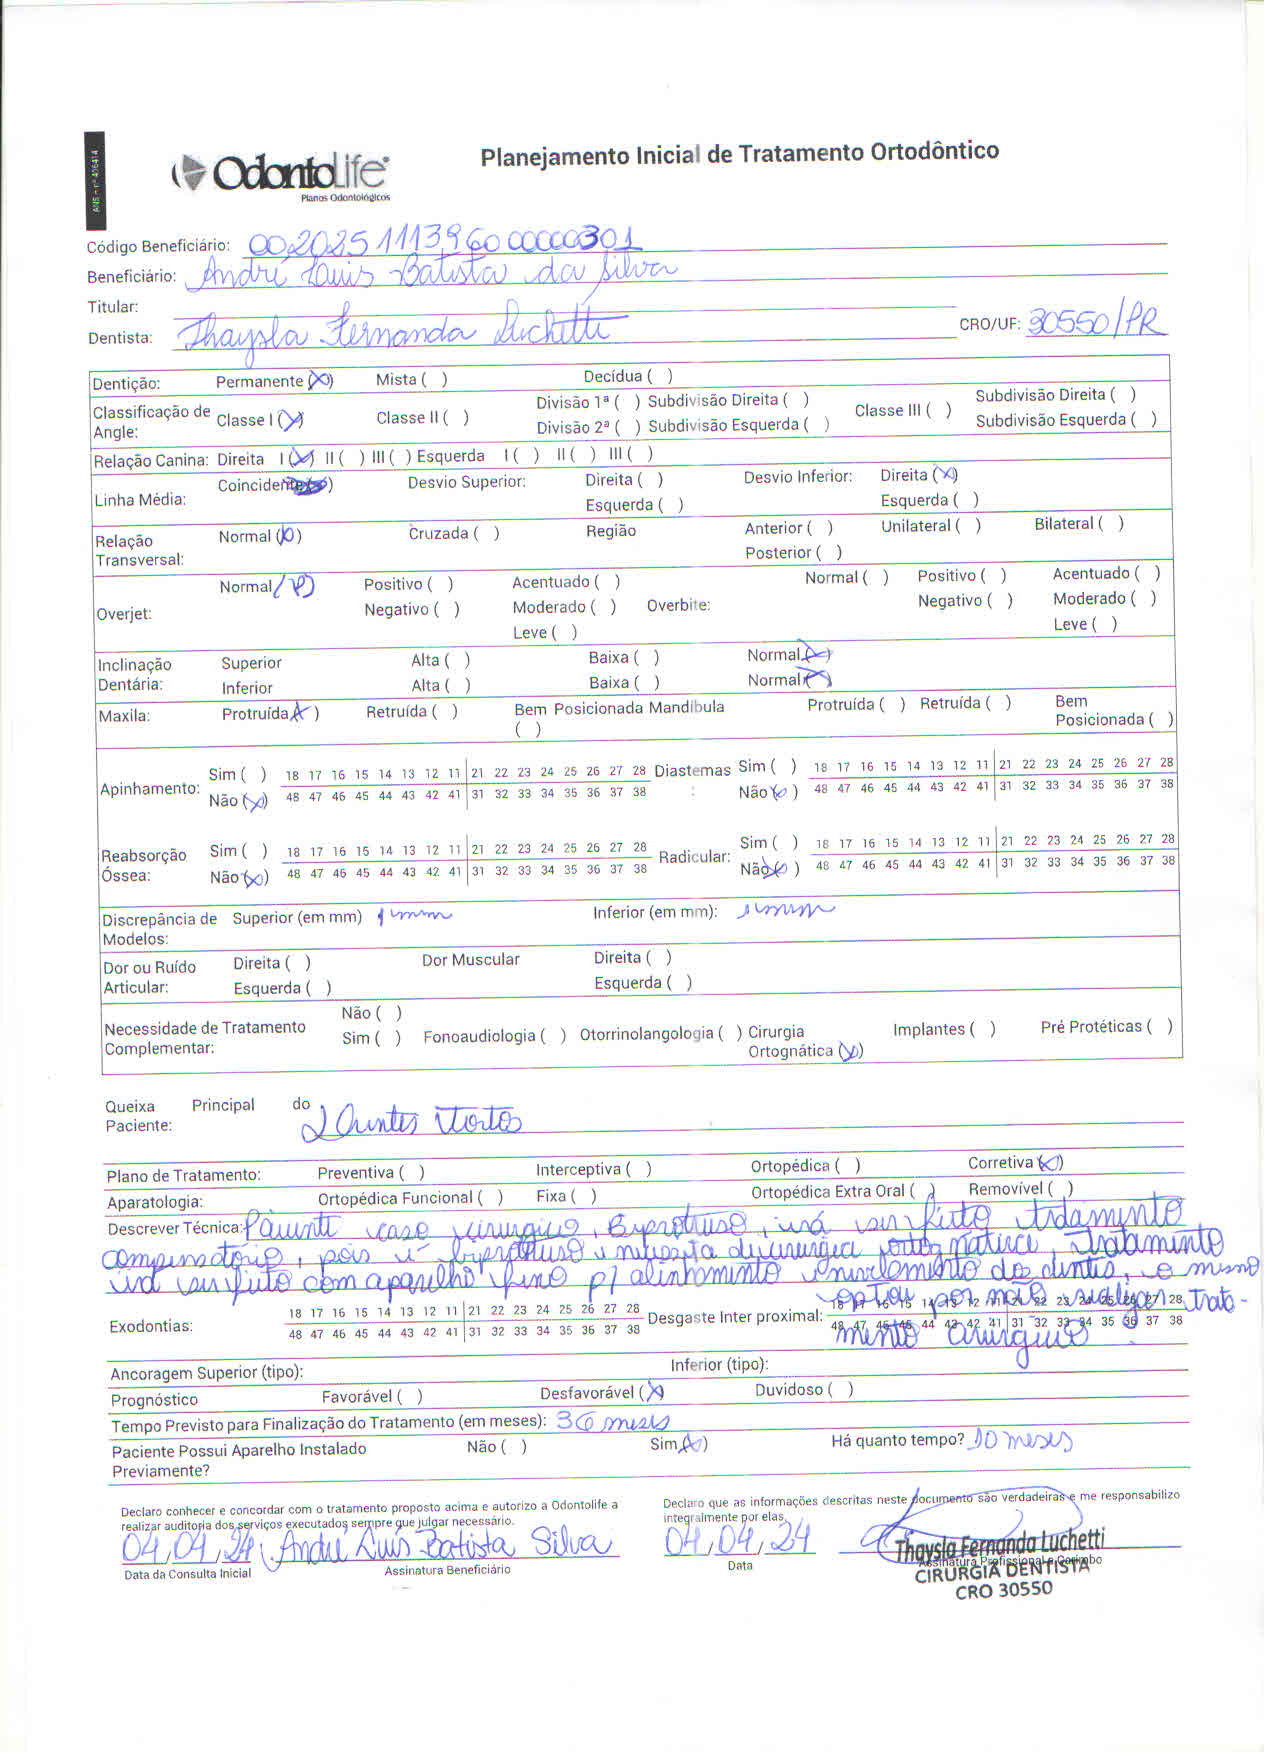 ANS - nº 416414
OdontoLife
Planos Odontológicos
Planejamento Inicial de Tratamento Ortodôntico
Código Beneficiário: 00202511139600000301
Beneficiário: André Luis Batista da Silva
Titular:
Dentista: Thaysla Fernanda Luchetti CRO/UF: 30550/PR
Dentição: Permanente (X) Mista ( ) Decídua ( )
Classificação de Angle: Classe I (X) Classe II ( ) Divisão 1ª ( ) Subdivisão Direita ( ) Classe III ( ) Subdivisão Direita ( )
Divisão 2ª ( ) Subdivisão Esquerda ( ) Subdivisão Esquerda ( )
Relação Canina: Direita I (X) II ( ) III ( ) Esquerda I ( ) II ( ) III ( )
Linha Média: Coincidente ( ) Desvio Superior: Direita ( ) Desvio Inferior: Direita (X)
Esquerda ( ) Esquerda ( )
Relação Transversal: Normal (X) Cruzada ( ) Região Anterior ( ) Unilateral ( ) Bilateral ( )
Posterior ( )
Overjet: Normal (X) Positivo ( ) Acentuado ( ) Overbite: Normal ( ) Positivo ( ) Acentuado ( )
Negativo ( ) Moderado ( ) Negativo ( ) Moderado ( )
Leve ( ) Leve ( )
Inclinação Dentária: Superior Alta ( ) Baixa ( ) Normal (X)
Inferior Alta ( ) Baixa ( ) Normal (X)
Maxila: Protruída (X) Retruída ( ) Bem Posicionada ( ) Mandíbula Protruída ( ) Retruída ( ) Bem Posicionada ( )
Apinhamento: Sim ( ) 18 17 16 15 14 13 12 11 21 22 23 24 25 26 27 28 Diastemas : Sim ( ) 18 17 16 15 14 13 12 11 21 22 23 24 25 26 27 28
Não (X) 48 47 46 45 44 43 42 41 31 32 33 34 35 36 37 38 Não (X) 48 47 46 45 44 43 42 41 31 32 33 34 35 36 37 38
Reabsorção Óssea: Sim ( ) 18 17 16 15 14 13 12 11 21 22 23 24 25 26 27 28 Radicular: Sim ( ) 18 17 16 15 14 13 12 11 21 22 23 24 25 26 27 28
Não (X) 48 47 46 45 44 43 42 41 31 32 33 34 35 36 37 38 Não (X) 48 47 46 45 44 43 42 41 31 32 33 34 35 36 37 38
Discrepância de Modelos: Superior (em mm) 1 mm Inferior (em mm): 1 mm
Dor ou Ruído Articular: Direita ( ) Dor Muscular Direita ( )
Esquerda ( ) Esquerda ( )
Necessidade de Tratamento Complementar: Não ( )
Sim ( ) Fonoaudiologia ( ) Otorrinolangologia ( ) Cirurgia Ortognática (X) Implantes ( ) Pré Protéticas ( )
Queixa Principal do Paciente: Dentes Tortos
Plano de Tratamento: Preventiva ( ) Interceptiva ( ) Ortopédica ( ) Corretiva (X)
Aparatologia: Ortopédica Funcional ( ) Fixa ( ) Ortopédica Extra Oral ( ) Removível ( )
Descrever Técnica: Paciente caso cirurgico, irá ser feito tratamento
compensatório, pois é e necessita de cirurgia, tratamento
irá ser feito com aparelho fixo p/ alinhamento e nivelamento dos dentes, o mesmo
optou por não realizar trata-
mento cirurgico.
Exodontias: 18 17 16 15 14 13 12 11 21 22 23 24 25 26 27 28 Desgaste Inter proximal: 18 17 16 15 14 13 12 11 21 22 23 24 25 26 27 28
48 47 46 45 44 43 42 41 31 32 33 34 35 36 37 38 48 47 46 45 44 43 42 41 31 32 33 34 35 36 37 38
Ancoragem Superior (tipo): Inferior (tipo):
Prognóstico Favorável ( ) Desfavorável (X) Duvidoso ( )
Tempo Previsto para Finalização do Tratamento (em meses): 36 meses
Paciente Possui Aparelho Instalado Previamente? Não ( ) Sim (X) Há quanto tempo? 10 meses
Declaro conhecer e concordar com o tratamento proposto acima e autorizo a Odontolife a
realizar auditoria dos serviços executados sempre que julgar necessário.
Declaro que as informações descritas neste documento são verdadeiras e me responsabilizo
integralmente por elas.
04,04,24 André Luís Batista Silva 04,04,24
Data da Consulta Inicial Assinatura Beneficiário Data Assinatura Profissional e Carimbo
Thaysla Fernanda Luchetti
CIRURGIÃ DENTISTA
CRO 30550